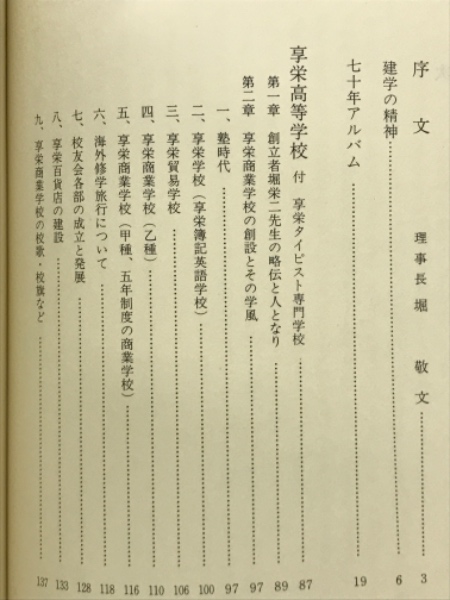 序文 理事長 堀 敬文……3
建学の精神……6
七十年アルバム……19
享栄高等学校 付 享栄タイピスト専門学校……87
第一章 創立者堀栄二先生の略伝と人となり……89
第二章 享栄商業学校の創設とその学風……97
一、塾時代……97
二、享栄学校（享栄簿記英語学校）……100
三、享栄貿易学校……106
四、享栄商業学校（乙種）……110
五、享栄商業学校（甲種、五年制度の商業学校）……116
六、海外修学旅行について……118
七、校友会各部の成立と発展……128
八、享栄百貨店の建設……133
九、享栄商業学校の校歌・校旗など……137